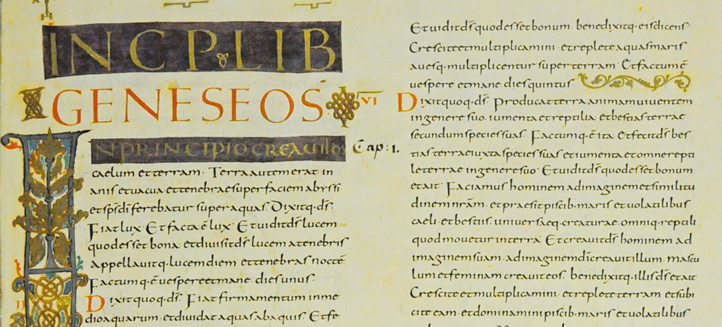 INCP LIB
GENESEOS
IN PRINCIPIO CREAVIT DS
caelum et terram. Terra autem erat in
anis et vacua et tenebrae super faciem abyssi
et sps dī ferebatur super aquas Dixitq· ds
Fiat lux Et facta ē lux Et vidit ds lucem
quod esset bona et divisit ds lucem a tenebris
appellavitq· lucem diem et tenebras noctē
Factumq· ē vespere et mane dies unus·
Dixit quoq· ds Fiat firmamentum in me
dio aquarum et dividat aquas ab aquis Et fe
Cap: 1.
Et vidit ds quod esset bonum benedixitq· eis dicens
Crescite et multiplicamini et replete aquas maris
avesq· multiplicentur super terram Et factum ē
vespere et mane dies quintus
VI
Dixit quoq· ds Producat terra animam viventem
in genere suo iumenta et reptilia et bestias terrae
secundum species suas Factumq· ē ita Et fecit ds bes
tias terrae iuxta species suas et iumenta et omne repti
le terrae in genere suo Et vidit ds quod esset bonum
et ait Faciamus hominem ad imaginem et similitu
dinem nram et praesit piscib· maris et volatilibus
caeli et bestiis universaeq· creaturae omniq· reptili
quod movetur in terra Et creavit ds hominem ad
imaginem suam ad imaginem dī creavit illum mascu
lum et feminam creavit eos benedixitq· illis ds et ait
Crescite et multiplicamini et replete terram et subi
cite eam et dominamini piscib· maris et volatilibus